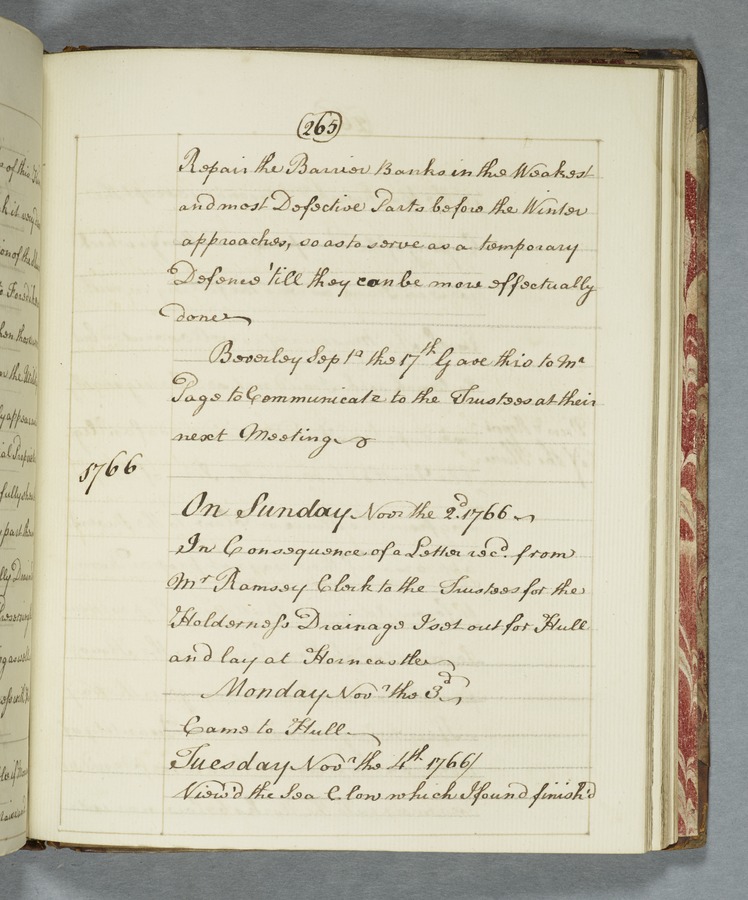 265
Repair the Barrier Banks in the Weakest
and most Defective Parts before the Winter
approaches, so as to serve as a temporary
Defence 'till they can be more effectually
done
Beverley Sepr. the 17th Gave this to Mr
Page to Communicate to the Trustees at their
next Meeting
1766
On Sunday Novr the 2d. 1766
In Consequence of a Letter recd. from
Mr Ramsey Clerk to the Trustees for the
Holderness Drainage I set out for Hull
and lay at Horncastle
Monday Novr the 3d
Came to Hull
Tuesday Novr the 4th 1766/
View'd the Sea Clow which I found finish'd